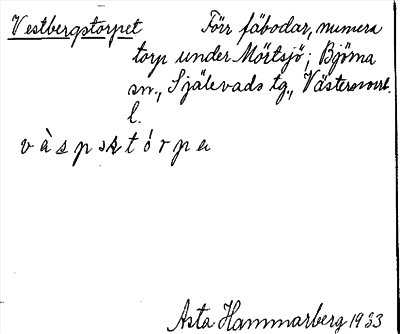 Vestbergstorpet Förr fäbodar, numera
torp under Mörtsjö; Björna
sn., Själevads tg., Västernorrl.
l.
vàspsktórpa
Asta Hammarberg 1933